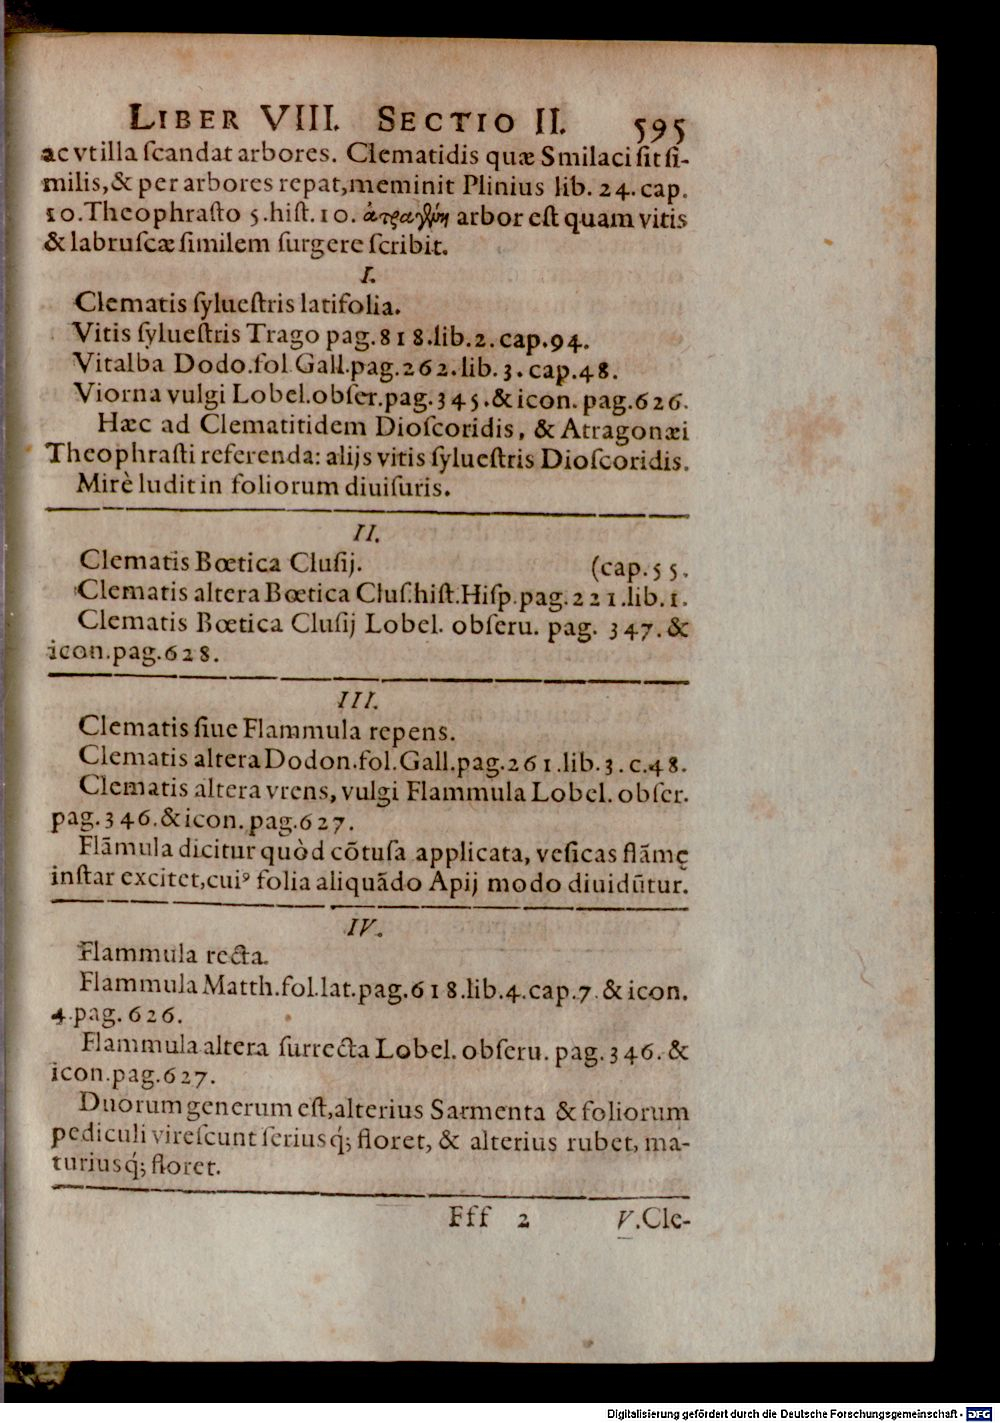 LIBER VIII. SECTIO II. 595
ac vt illa ſcandat arbores. Clematidis quæ Smilaci ſit ſi-
milis, & per arbores repat, meminit Plinius lib. 24. cap.
10. Theophraſto 5. hiſt. 10. arbor eſt quam vitis
& labruſcæ ſimilem ſurgere ſcribit.
I.
Clematis ſylueſtris latifolia.
Vitis ſylueſtris Trago pag. 818. lib. 2. cap. 94.
Vitalba Dodo. fol. Gall. pag. 262. lib. 3. cap. 48.
Viorna vulgi Lobel. obſer. pag. 345. & icon. pag. 626.
Hæc ad Clematitidem Dioſcoridis, & Atragonæi
Theophraſti referenda: alijs vitis ſylueſtris Dioſcoridis.
Mirè ludit in foliorum diuiſuris.
II.
Clematis Bœtica Cluſij. (cap. 55.
Clematis altera Bœtica Cluſ. hiſt. Hiſp. pag. 221. lib. 1.
Clematis Bœtica Cluſij Lobel. obſeru. pag. 347. &
icon. pag. 628.
III.
Clematis ſiue Flammula repens.
Clematis altera Dodon. fol. Gall. pag. 261. lib. 3. c. 48.
Clematis altera vrens, vulgi Flammula Lobel. obſer.
pag. 346. & icon. pag. 627.
Flãmula dicitur quòd cõtuſa applicata, veſicas flãmę
inſtar excitet, cuiꝰ folia aliquãdo Apij modo diuidũtur.
IV.
Flammula recta.
Flammula Matth. fol. lat. pag. 618. lib. 4. cap. 7. & icon.
4. pag. 626.
Flammula altera ſurrecta Lobel. obſeru. pag. 346. &
icon. pag. 627.
Duorum generum eſt, alterius Sarmenta & foliorum
pediculi vireſcunt ſeriusq́; floret, & alterius rubet, ma-
turiusq́; floret.
Fff 2 V. Cle-
Digitalisierung gefördert durch die Deutsche Forschungsgemeinschaft - DFG